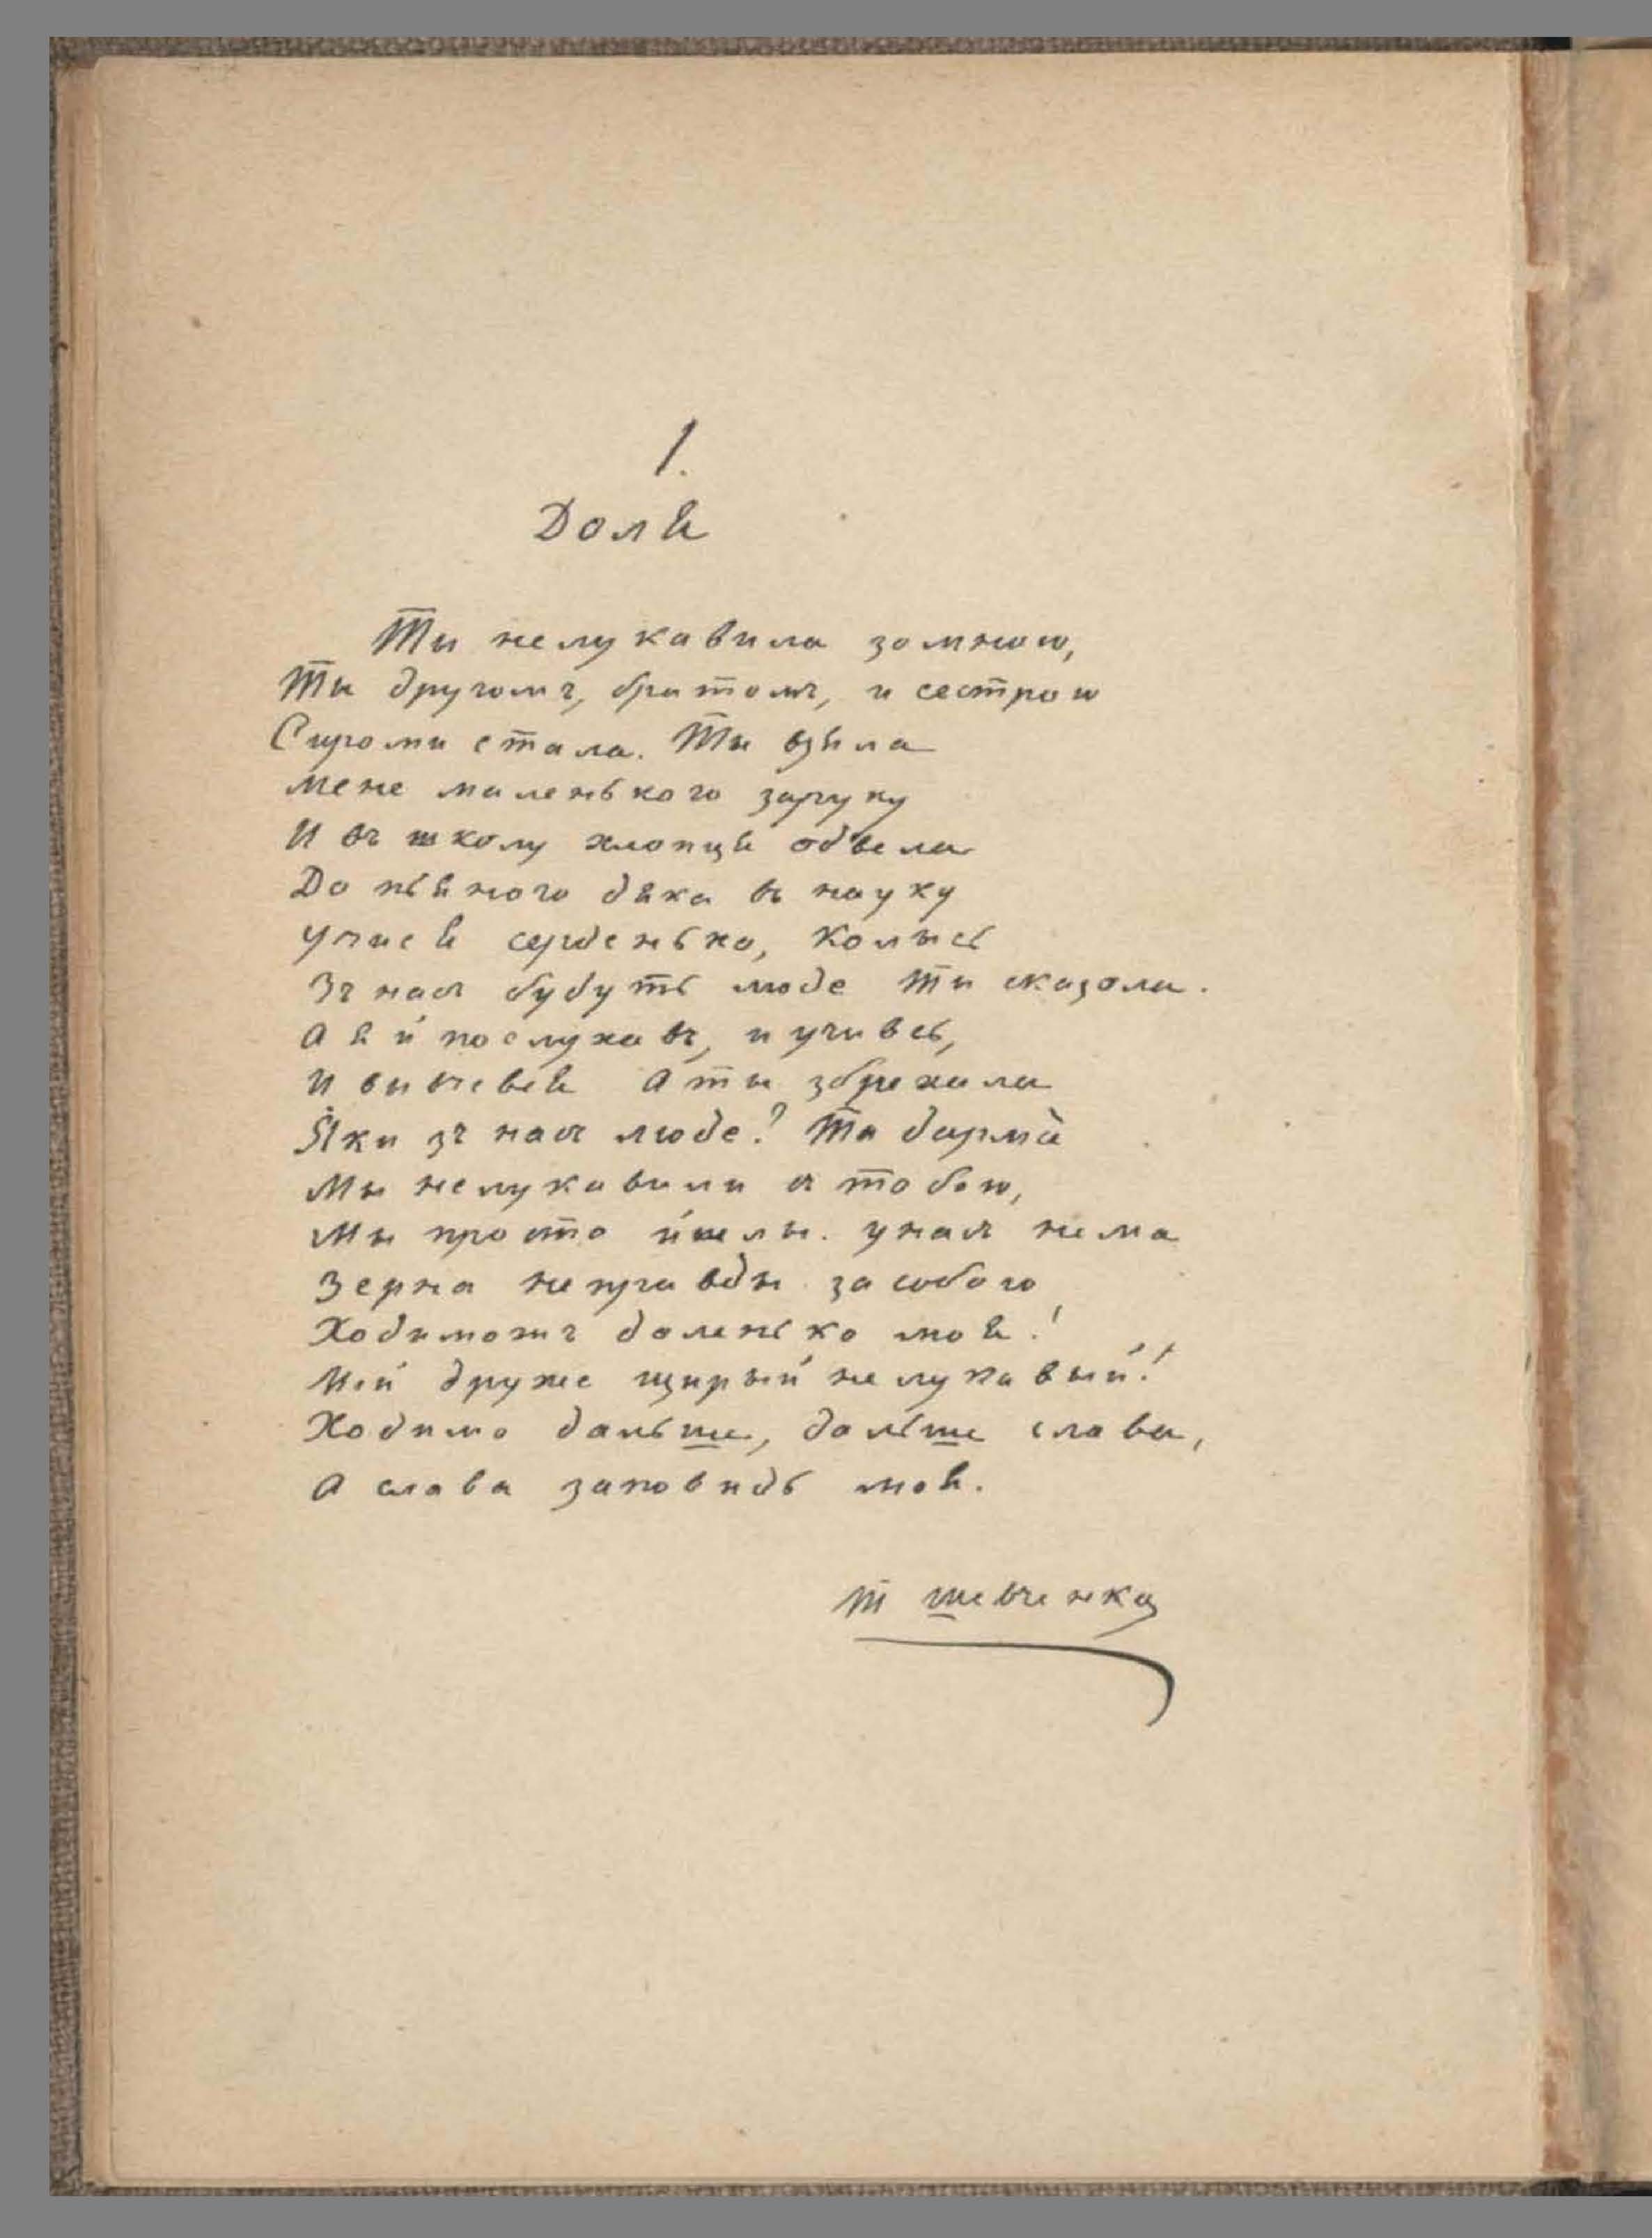 1.
Доля
Ти нелукавила зомною,
Ти другомъ, братомъ, и сестрою
Сироми стала. Ти взяла
Мене маленького заруку
И въ школу хлопця одвела
До пьяного дяка въ науку
Учися серденько, Колысь
Зъ насъ будуть люде ти сказала.
А я й послухавъ, и учивсь,
И вивчевсь А ти збрехала
Яки зъ насъ люде? Та дарма
Мы нелукавили съ тобою,
Мы просто йшлы. унасъ нема
Зерна неправды за собою
Ходиможъ доленько моя!
Мій друже щирый нелукавый!
Ходимо дальше, дальше слава,
А слава заповидь моя.
Т Шевченко